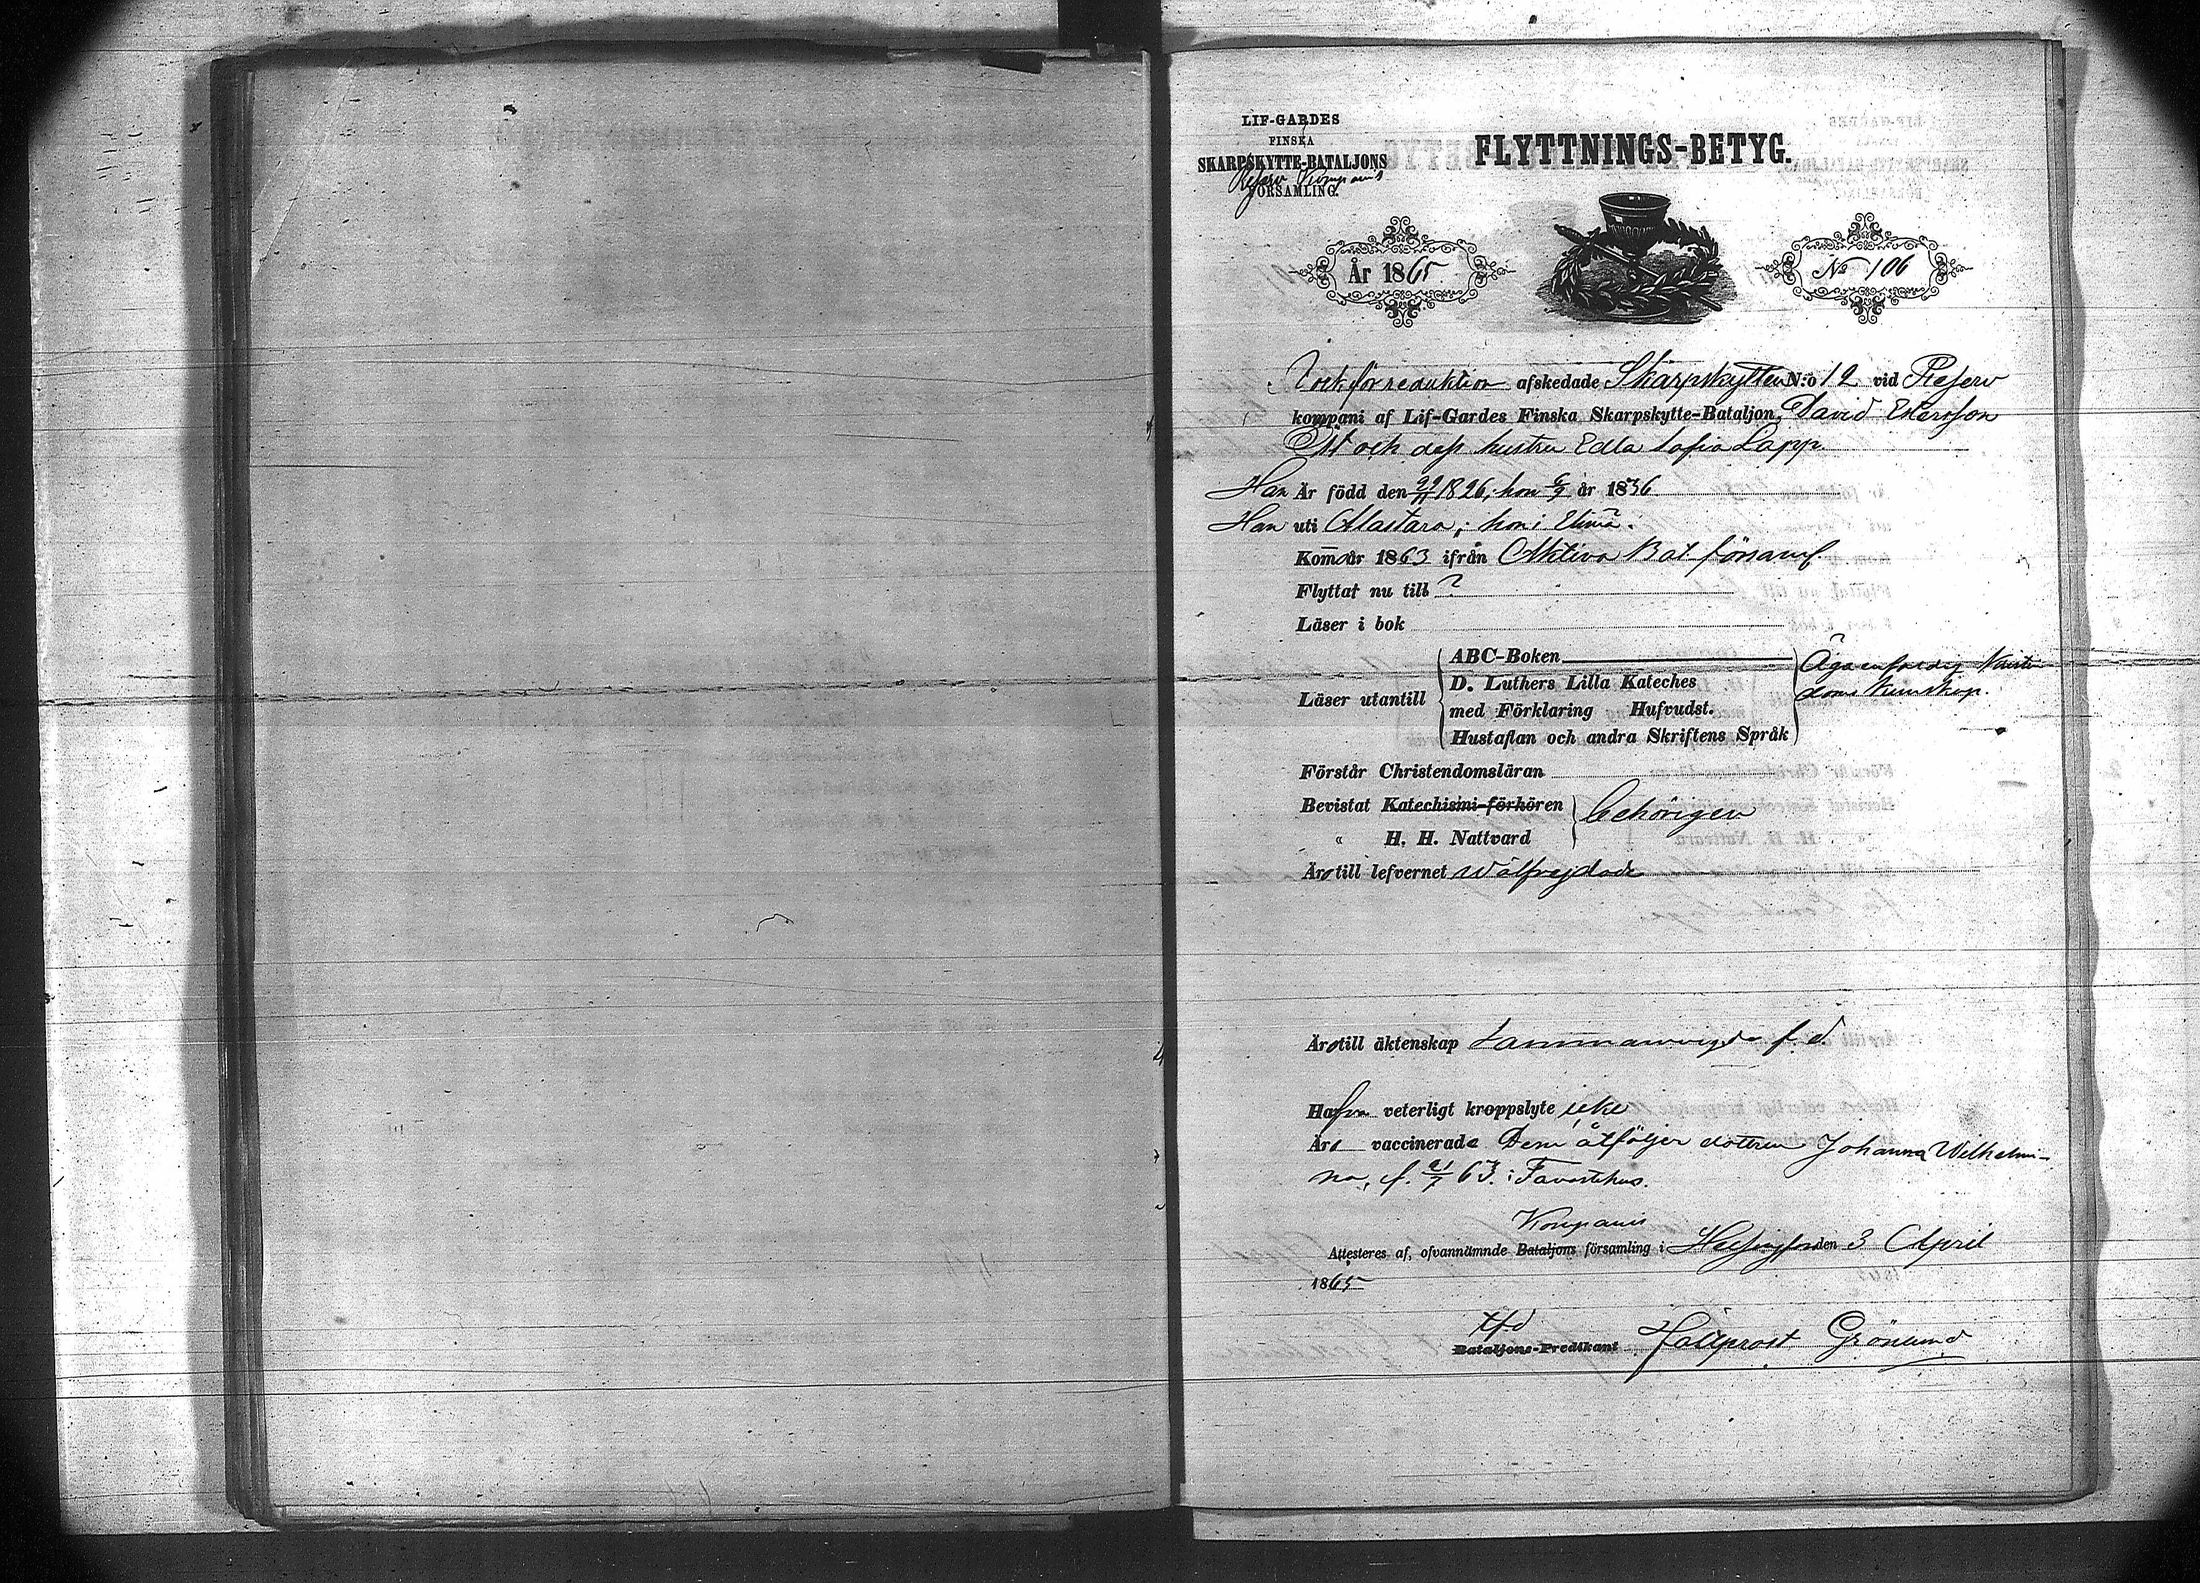 LIF-GARDES
FINSKA
SKARPSKYTTE-BATALJONS
Reserv Kompanis
FÖRSAMLING.
FLYTTNINGS-BETYG.
År 1865
No 106
för reduktion afskedade Skarpskytten N:o 12 vid Reserv
kompani af Lif-Gardes Finska Skarpskytte-Bataljon, David
och dess hustru Edla Sofia Lapp.
Han Är född den 1826, hon år 1836
Han uti Alastaro, hon i Elimä.
Kom år 1863 ifrån Aktiva Bat. församl.
Flyttat nu till ?
Läser i bok
Läser utantill
ABC-Boken
D. Luthers Lilla Kateches
med Förklaring Hufvudst.
Hustaflan och andra Skriftens Språk
Äga enfaldig Kristen-
doms kunskap.
Förstår Christendomsläran
Bevistat Katechismi-förhören
" H. H. Nattvard
behörigen
Äro till lefvernet wälfrejdade
Äro till äktenskap Sammanvigde f. d.
Hafva veterligt kroppslyte icke
Äro vaccinerade Dem åtföljer dottren Johanna Wilhelmi-
na, f. 21/7 63 i Tavastehus.
Kompanis
Attesteres af, ofvannämnde Bataljons församling i Helsingfors den 3 April
1865
Tf.d
Bataljons-Predikant Fältprost Grönlund